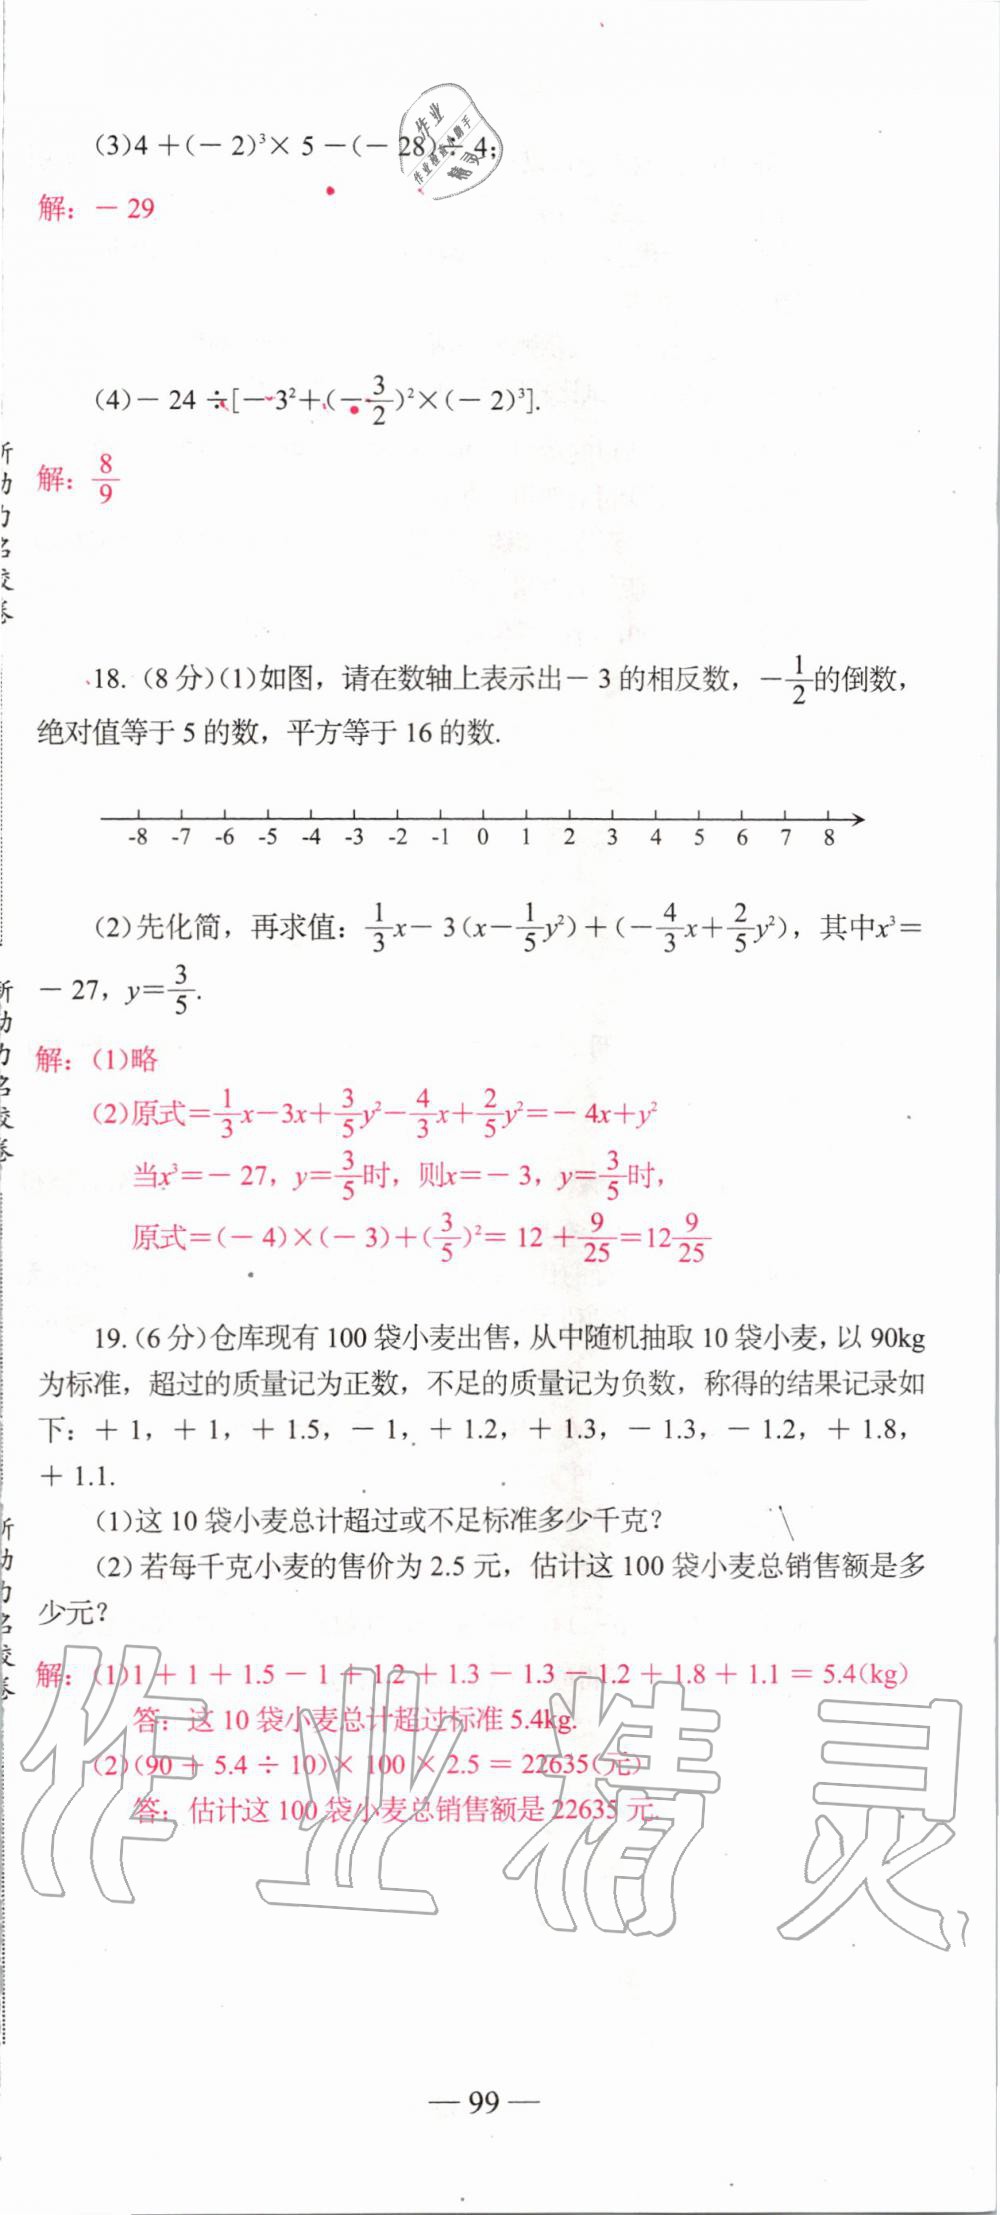 (3)4＋(－2)³×5－(－28)÷4;
解：－29
(4)－24÷[－3²＋(－3/2)²×(－2)³].
解：8/9
18. (8分)(1)如图，请在数轴上表示出－3的相反数，－1/2的倒数，
绝对值等于5的数，平方等于16的数.
-8 -7 -6 -5 -4 -3 -2 -1 0 1 2 3 4 5 6 7 8
(2)先化简，再求值：1/3x－3(x－1/5y²)＋(－4/3x＋2/5y²)，其中x³＝
－27，y＝3/5.
解：(1)略
(2)原式＝1/3x－3x＋3/5y²－4/3x＋2/5y²＝－4x＋y²
当x³＝－27，y＝3/5时，则x＝－3，y＝3/5时，
原式＝(－4)×(－3)＋(3/5)²＝12＋9/25＝12 9/25
19. (6分)仓库现有100袋小麦出售，从中随机抽取10袋小麦，以90kg
为标准，超过的质量记为正数，不足的质量记为负数，称得的结果记录如
下：＋1，＋1，＋1.5，－1，＋1.2，＋1.3，－1.3，－1.2，＋1.8，
＋1.1.
(1)这10袋小麦总计超过或不足标准多少千克？
(2)若每千克小麦的售价为2.5元，估计这100袋小麦总销售额是多
少元？
解：(1)1＋1＋1.5－1＋1.2＋1.3－1.3－1.2＋1.8＋1.1＝5.4(kg)
答：这10袋小麦总计超过标准5.4kg.
(2)(90＋5.4÷10)×100×2.5＝22635(元)
答：估计这100袋小麦总销售额是22635元.
作业精灵
— 99 —